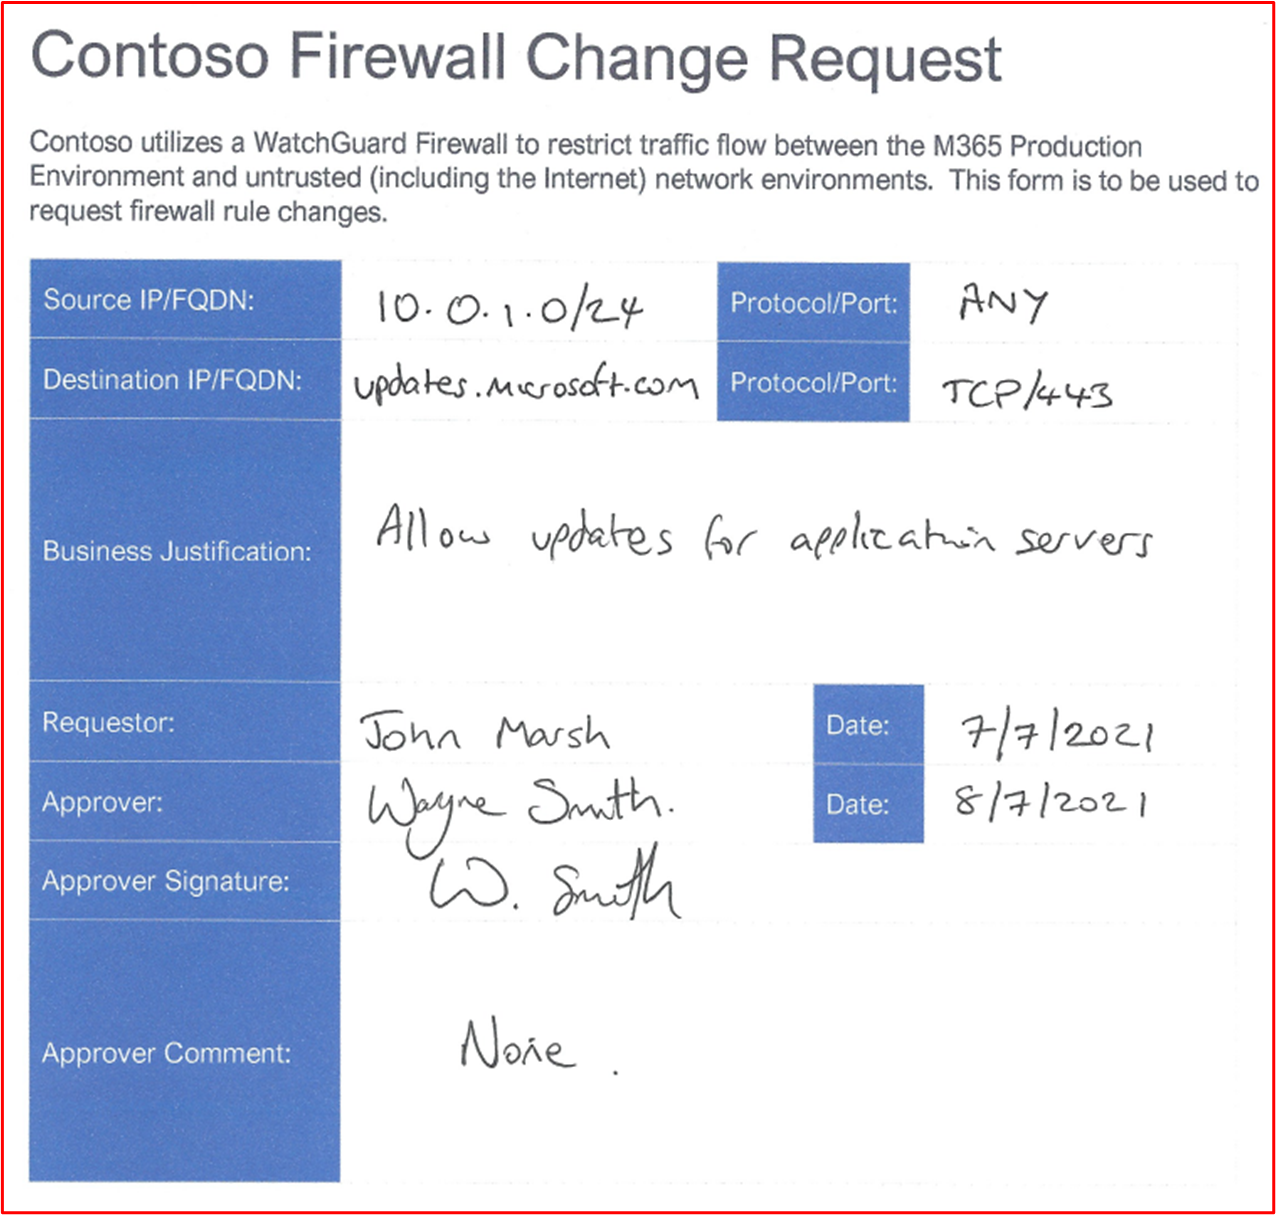 Contoso Firewall Change Request
Contoso utilizes a WatchGuard Firewall to restrict traffic flow between the M365 Production
Environment and untrusted (including the Internet) network environments.  This form is to be used to
request firewall rule changes.
Source IP/FQDN: 10.0.1.0/24 Protocol/Port: ANY
Destination IP/FQDN: updates.microsoft.com Protocol/Port: TCP/443
Business Justification: Allow updates for application servers
Requestor: John Marsh Date: 7/7/2021
Approver: Wayne Smith. Date: 8/7/2021
Approver Signature: W. Smith
Approver Comment: None.